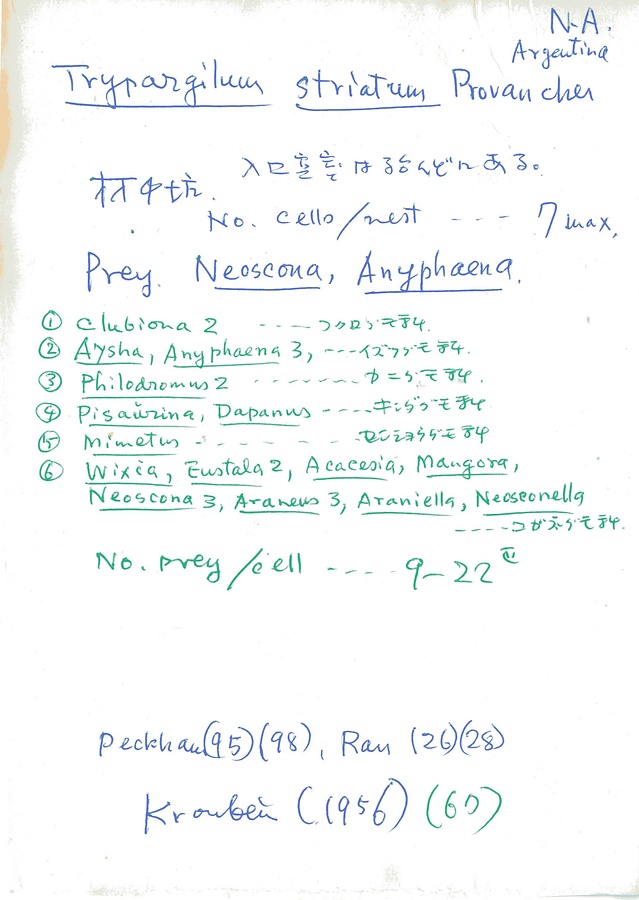 N-A.
Argentina
Trypargilum striatum Provancher
入口
材中坑.
No. cells/nest --- 7 max.
Prey. Neoscona, Anyphaena.
① Clubiona 2 ---- フクログモ科.
② Aysha, Anyphaena 3, --- イヅツグモ科.
③ Philodromus 2 ------- カニグモ科.
④ Pisaurina, Dapanus ---- キシダグモ科
⑤ Mimetus - - - - - - センショウグモ科
⑥ Wixia, Eustala 2, Acacesia, Mangora,
Neoscona 3, Araneus 3, Araniella, Neosconella
---- コガネグモ科.
No. prey/cell ---- 9-22
Peckham (95)(98), Rau (26)(28)
Krombein (1956) (60)